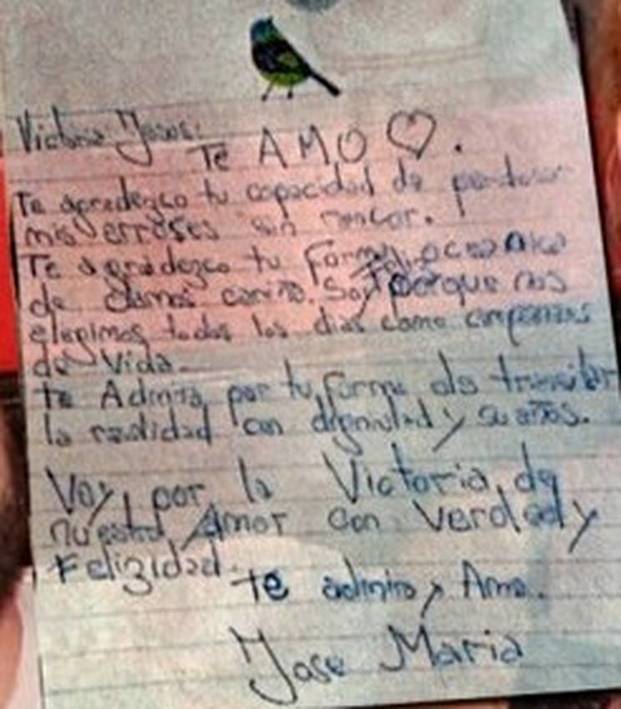 Victoria Jesus:
Te AMO ♡.
Te agradezco tu capacidad de perdonar
mis errores sin rencor.
Te agradezco tu forma
de darnos cariño. Soy Feliz porque nos
elegimos todos los dias como compañeros
de Vida.
te Admiro por tu forma de transitar
la realidad con dignidad y sueños.
Voy por la Victoria de
nuestro Amor con Verdad y
Felizidad.
te admiro y Amo.
Jose Maria